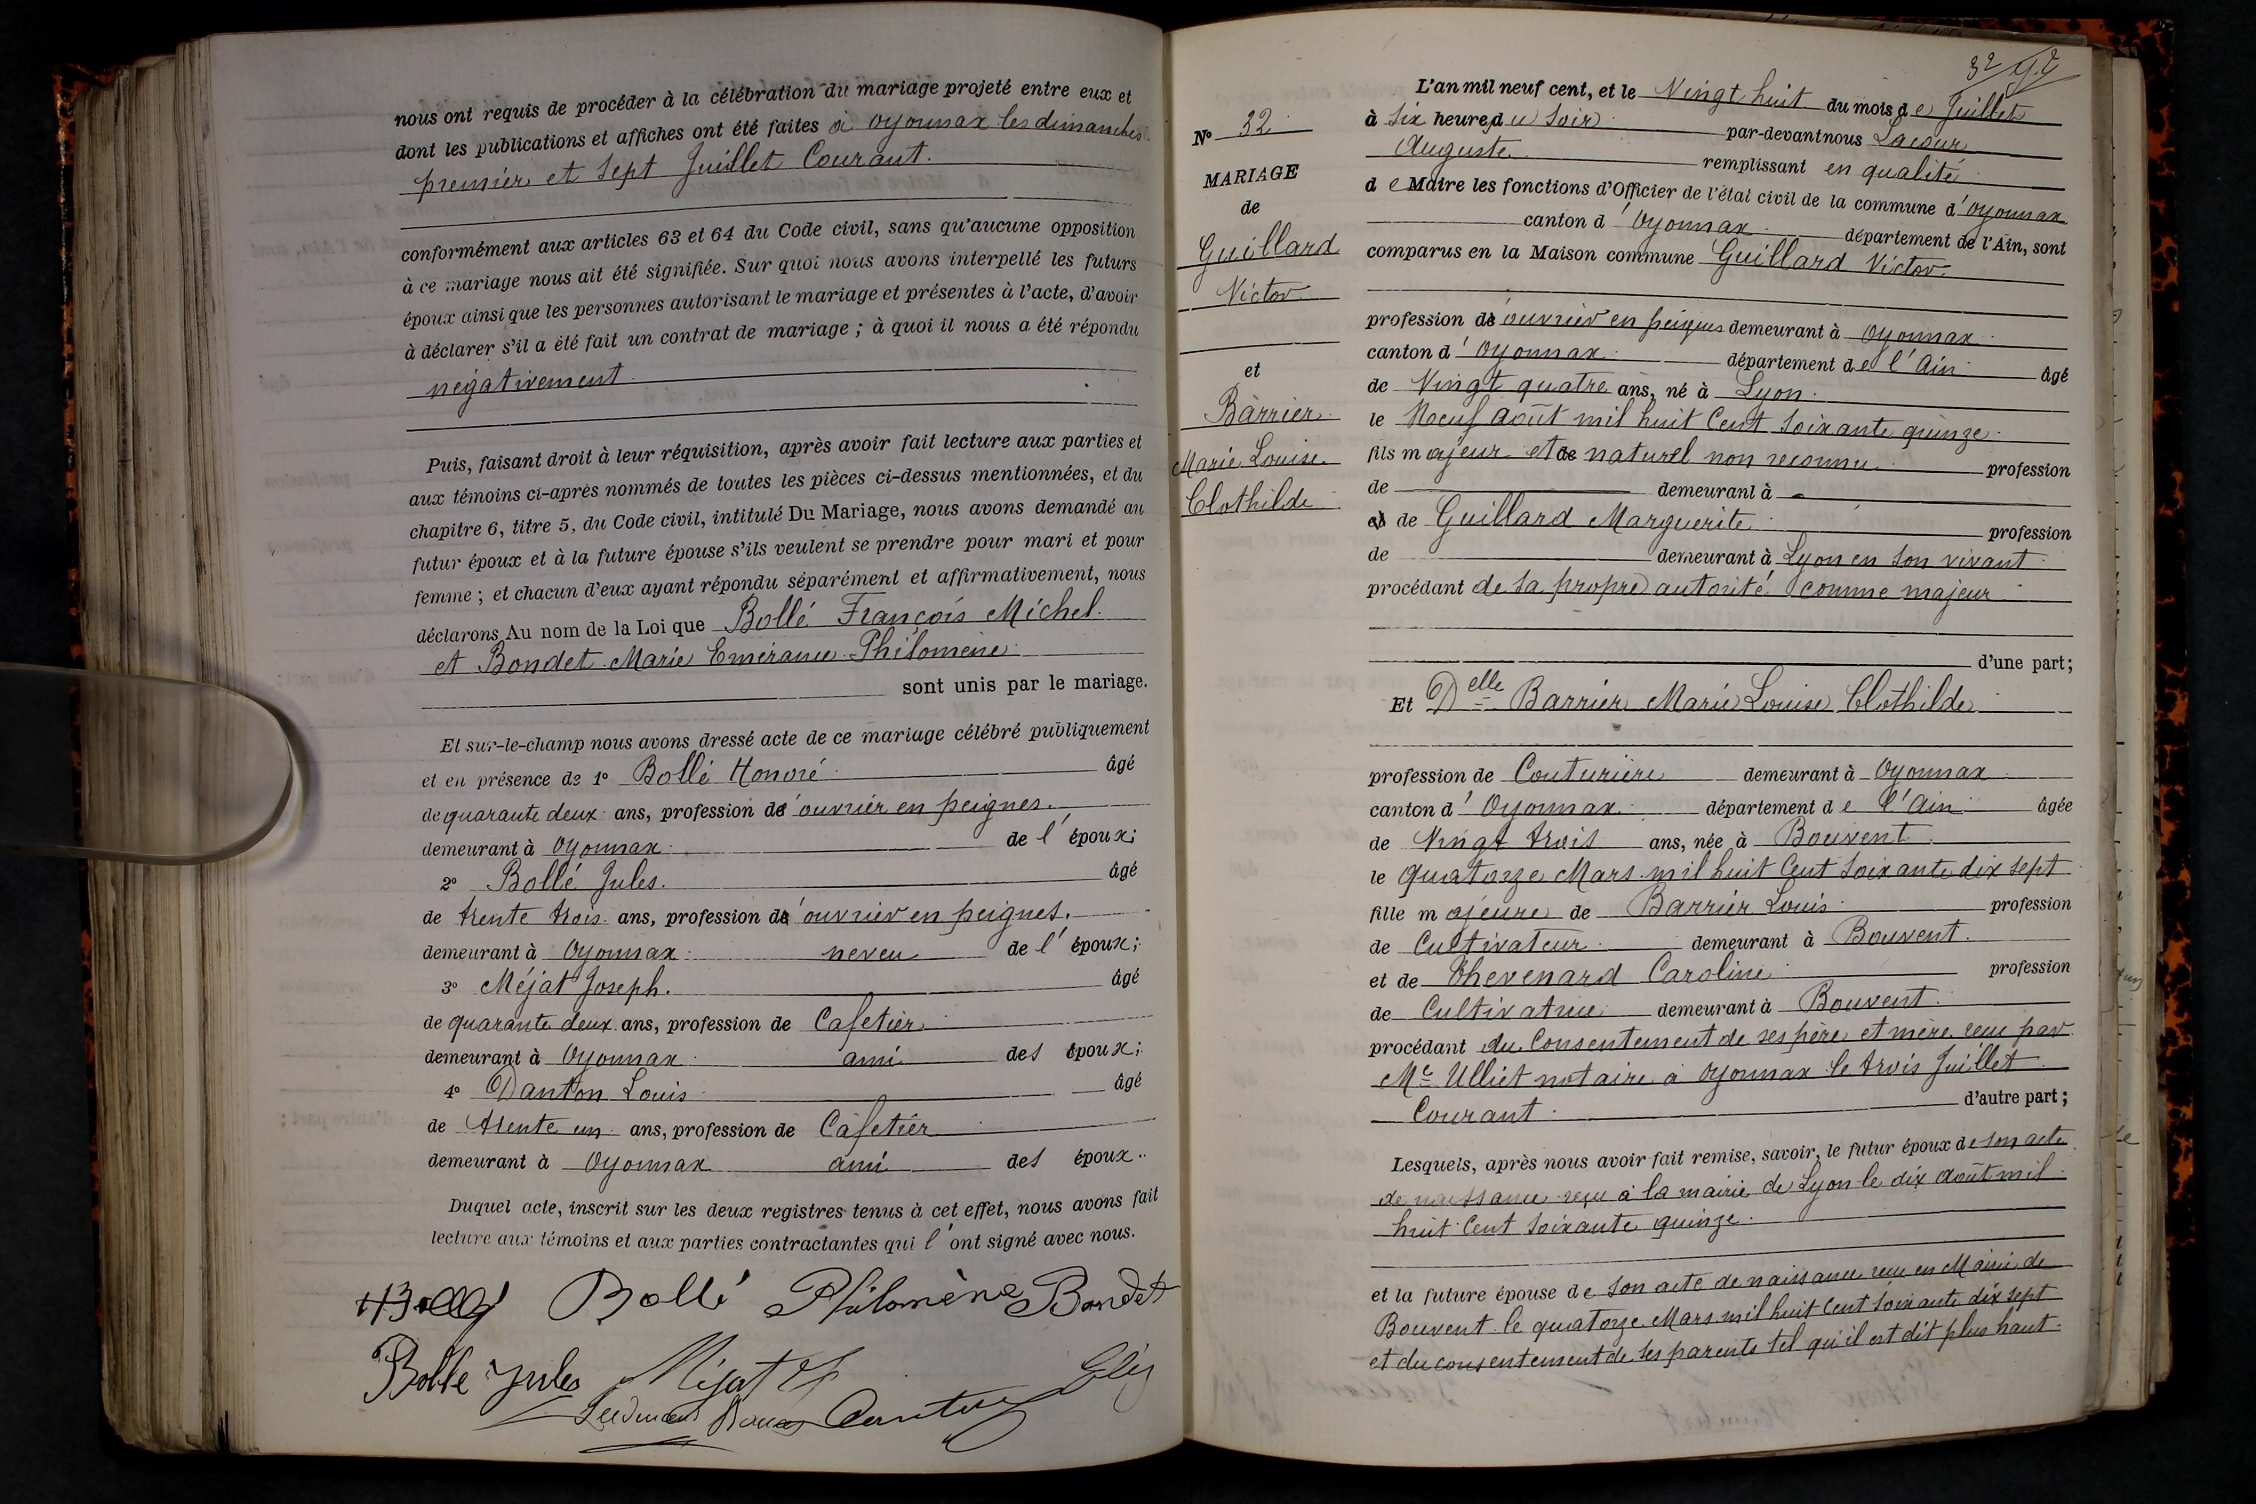 nous ont requis de procéder à la célébration du mariage projeté entre eux et
dont les publications et affiches ont été faites à Oyonnax les dimanches
premier et sept Juillet Courant.
conformément aux articles 63 et 64 du Code civil, sans qu'aucune opposition
à ce mariage nous ait été signifiée. Sur quoi nous avons interpellé les futurs
époux ainsi que les personnes autorisant le mariage et présentes à l'acte, d'avoir
à déclarer s'il a été fait un contrat de mariage ; à quoi il nous a été répondu
négativement
Puis, faisant droit à leur réquisition, après avoir fait lecture aux parties et
aux témoins ci-après nommés de toutes les pièces ci-dessus mentionnées, et du
chapitre 6, titre 5, du Code civil, intitulé Du Mariage, nous avons demandé au
futur époux et à la future épouse s'ils veulent se prendre pour mari et pour
femme ; et chacun d'eux ayant répondu séparément et affirmativement, nous
déclarons Au nom de la Loi que Bollé François Michel
et Bondet Marie Emérance Philomène
sont unis par le mariage.
Et sur-le-champ nous avons dressé acte de ce mariage célébré publiquement
et en présence de 1º Bollé Honoré âgé
de quarante deux ans, profession d'ouvrier en peignes.
demeurant à Oyonnax de l'époux;
2º Bollé Jules. âgé
de trente trois ans, profession d'ouvrier en peignes.
demeurant à Oyonnax neveu de l'époux;
3º Méjat Joseph. âgé
de quarante deux ans, profession de Cafetier
demeurant à Oyonnax ami des époux;
4º Danton Louis âgé
de trente un ans, profession de Cafetier
demeurant à Oyonnax ami des époux.
Duquel acte, inscrit sur les deux registres tenus à cet effet, nous avons fait
lecture aux témoins et aux parties contractantes qui l'ont signé avec nous.
Bollé Philomène Bondet
Bolle Jules Méjat
32
Nº 32
MARIAGE
de
Guillard
Victor
et
Barrier
Marie Louise
Clothilde
L'an mil neuf cent, et le Vingt huit du mois de Juillet
à Six heures du Soir par-devant nous Lacour
Auguste remplissant en qualité
de Maire les fonctions d'Officier de l'état civil de la commune d'Oyonnax
canton d'Oyonnax département de l'Ain, sont
comparus en la Maison commune Guillard Victor
profession d'ouvrier en peignes demeurant à Oyonnax
canton d'Oyonnax département de l'Ain âgé
de Vingt quatre ans, né à Lyon
le Neuf août mil huit Cent Soixante quinze
fils majeur et naturel non reconnu profession
de demeurant à
de Guillard Marguerite profession
de demeurant à Lyon en son vivant
procédant de sa propre autorité comme majeur
d'une part;
Et Delle Barrier Marie Louise Clothilde
profession de Couturière demeurant à Oyonnax
canton d'Oyonnax département de l'Ain âgée
de Vingt trois ans, née à Bouvent
le quatorze Mars mil huit Cent Soixante dix sept
fille majeure de Barrier Louis profession
de Cultivateur demeurant à Bouvent.
et de Thevenard Caroline profession
de Cultivatrice demeurant à Bouvent
procédant du Consentement de ses père et mère reçu par
Me Ulliet notaire à Oyonnax le trois Juillet
Courant d'autre part;
Lesquels, après nous avoir fait remise, savoir, le futur époux de son acte
de naissance reçu à la mairie de Lyon le dix août mil
huit Cent soixante quinze
et la future épouse de son acte de naissance reçu en Mairie de
Bouvent le quatorze Mars mil huit Cent soixante dix sept
et du consentement de ses parents tel qu'il est dit plus haut